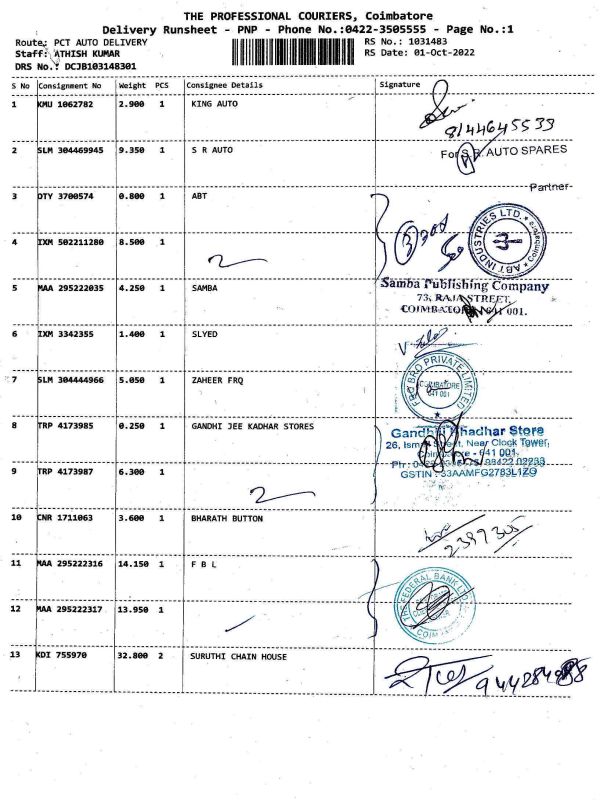 THE PROFESSIONAL COURIERS, Coimbatore
Delivery Runsheet - PNP - Phone No.:0422-3505555 - Page No.:1
Route: PCT AUTO DELIVERY
Staff: ATHISH KUMAR
DRS No.: DCJB103148301
RS No.: 1031483
RS Date: 01-Oct-2022
S No Consignment No Weight PCS Consignee Details Signature
1 KMU 1062782 2.900 1 KING AUTO
8144645533
2 SLM 304469945 9.350 1 S R AUTO
For S.R. AUTO SPARES
Partner
3 DTY 3700574 0.800 1 ABT
ABT INDUSTRIES LTD.
4 IXM 502211280 8.500 1
5 MAA 295222035 4.250 1 SAMBA
Samba Publishing Company
73, RAJA STREET,
COIMBATORE 641 001.
6 IXM 3342355 1.400 1 SLYED
7 SLM 304444966 5.050 1 ZAHEER FRQ
BRO PRIVATE LIMITED
COIMBATORE
641 001
8 TRP 4173985 0.250 1 GANDHI JEE KADHAR STORES
Gandhi Khadhar Store
26, Street, Near Clock Tower,
Coimbatore - 641 001.
GSTIN : 33AAMFG2783L1ZG
9 TRP 4173987 6.300 1
2
10 CNR 1711063 3.600 1 BHARATH BUTTON
2397305
11 MAA 295222316 14.150 1 F B L
THE FEDERAL BANK LTD.
12 MAA 295222317 13.950 1
13 KDI 755970 32.800 2 SURUTHI CHAIN HOUSE